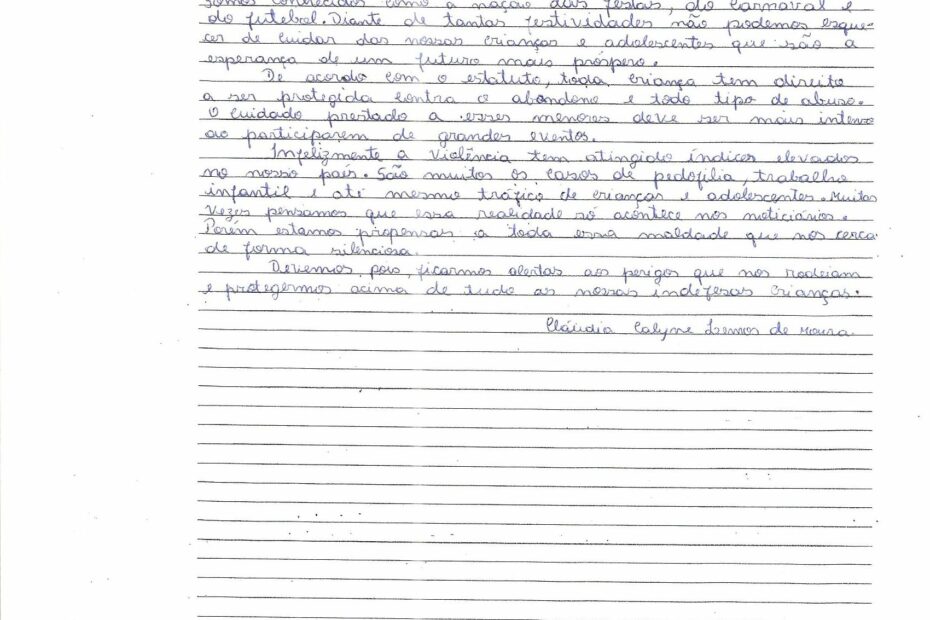 somos conhecidos como a nação das festas, do carnaval e
do futebol. Diante de tantas festividades não podemos esque-
cer de cuidar das nossas crianças e adolescentes que são a
esperança de um futuro mais próspero.
De acordo com o estatuto, toda criança tem direito
a ser protegida contra o abandono e todo tipo de abuso.
O cuidado prestado a esses menores deve ser mais intenso
ao participarem de grandes eventos.
Infelizmente a violência tem atingido índices elevados
no nosso país. São muitos os casos de pedofilia, trabalho
infantil e até mesmo tráfico de crianças e adolescentes. Muitas
vezes pensamos que essa realidade só acontece nos noticiários.
Porém estamos propensas a toda essa maldade que nos cerca
de forma silenciosa.
Devemos, pois, ficarmos alertas aos perigos que nos rodeiam
e protegermos acima de tudo as nossas indefesas crianças.
Cláudia Calyne Lemos de Moura.